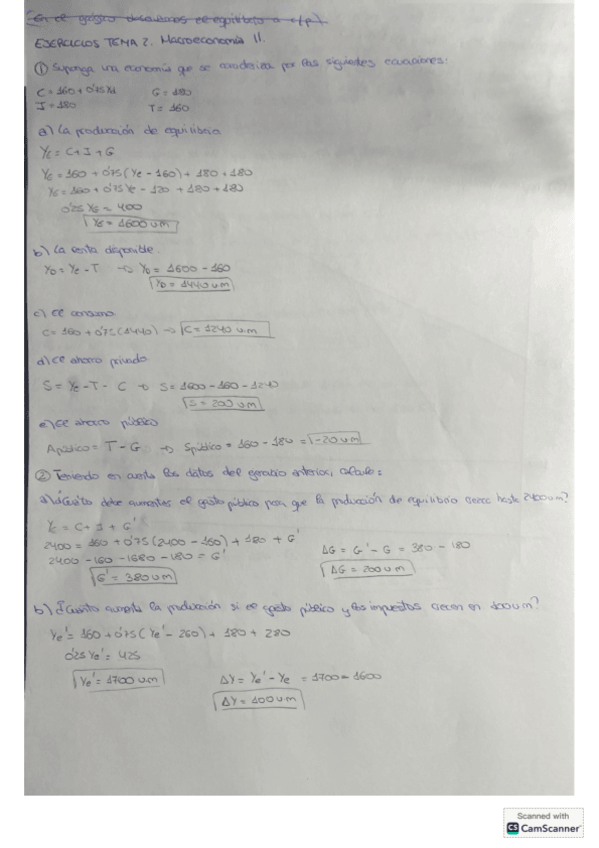 En el gráfico el equilibrio a c/p).
EJERCICIOS TEMA 2. Macroeconomía II.
① Suponga una economía que se caracteriza por las siguientes ecuaciones:
C = 160 + 0'75Yd G = 180
I = 180 T = 160
a) La producción de equilibrio
Ye = C + I + G
Ye = 160 + 0'75 (Ye - 160) + 180 + 180
Ye = 160 + 0'75Ye - 120 + 180 + 180
0'25 Ye = 400
Ye = 1600 u.m
b) La renta disponible.
YD = Ye - T → YD = 1600 - 160
YD = 1440 u.m
c) El consumo
C = 160 + 0'75 (1440) → C = 1240 u.m
d) El ahorro privado
S = Ye - T - C → S = 1600 - 160 - 1240
S = 200 u.m
e) El ahorro público
Apúblico = T - G → Spúblico = 160 - 180 = -20 u.m
② Teniendo en cuenta los datos del ejercicio anterior, calcule:
a) ¿Cuánto debe aumentar el gasto público para que la producción de equilibrio crezca hasta 2400 u.m?
Ye = C + I + G'
2400 = 160 + 0'75 (2400 - 160) + 180 + G'
2400 - 160 - 1680 - 180 = G'
ΔG = G' - G = 380 - 180
G' = 380 u.m
ΔG = 200 u.m
b) ¿Cuánto aumenta la producción si el gasto público y los impuestos crecen en 100 u.m?
Ye' = 160 + 0'75 (Ye' - 260) + 180 + 280
0'25 Ye' = 425
Ye' = 1700 u.m
ΔY = Ye' - Ye = 1700 - 1600
ΔY = 100 u.m
Scanned with
CS CamScanner